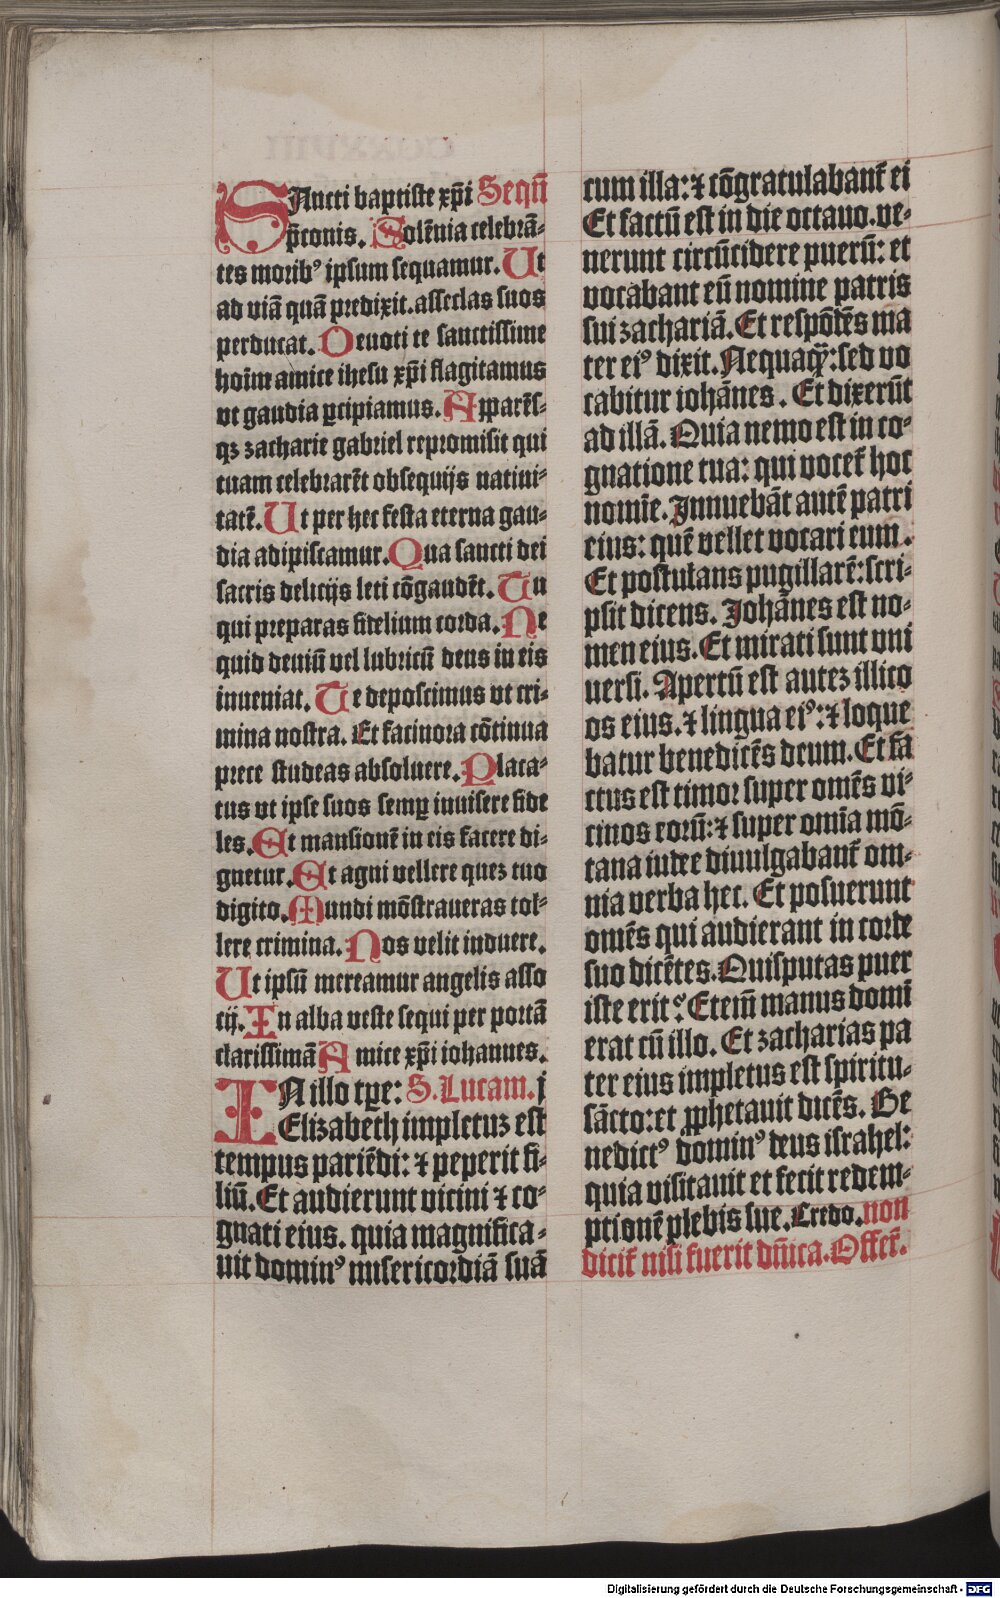 SAncti baptiste xp̄i Seqū
p̄conis. Solēnia celebrā-
tes moribꝰ ipsum sequamur. Ut
ad viā quā predixit. asseclas suos
perducat. Deuoti te sanctissime
hoīm amice ihesu xp̄i flagitamus
vt gaudia ꝑcipiamus. Apparēs-
qꝫ zacharie gabriel repromisit qui
tuam celebrarēt obsequijs natiui-
tatē. Ut per hec festa eterna gau-
dia adipiscamur. Qua sancti dei
sacris delicijs leti cōgaudēt. Tu
qui preparas fidelium corda. Ne
quid deuiū vel lubricū deus in eis
inueniat. Te deposcimus vt cri-
mina nostra. Et facinora cōtinua
prece studeas absoluere. Placa-
tus vt ipse suos semꝑ inuisere fide
les. Et mansionē in eis facere di-
gnetur. Et agni vellere quez tuo
digito. Mundi mōstraueras tol-
lere crimina. Nos velit induere.
Ut ipsū mereamur angelis asso
cij. In alba veste sequi per portā
clarissimā Amice xp̄i iohannes.
IN illo tꝑe: S. Lucam. j
Elizabeth impletuz est
tempus pariēdi: ⁊ peperit fi-
liū. Et audierunt vicini ⁊ co-
gnati eius. quia magnifica-
uit dominꝰ misericordiā suā
cum illa: ⁊ cōgratulabant̄ ei
Et factū est in die octauo. ve-
nerunt circūcidere puerū: et
vocabant eū nomine patris
sui zachariā. Et respōdēs ma
ter eiꝰ dixit. Nequaqꝫ: sed vo
cabitur iohānes. Et dixerūt
ad illā. Quia nemo est in co-
gnatione tua: qui vocet̄ hoc
nomīe. Innuebāt autē patri
eius: quē vellet vocari eum.
Et postulans pugillarē: scri-
psit dicens. Johānes est no-
men eius. Et mirati sunt vni
uersi. Apertū est autez illico
os eius. ⁊ lingua eiꝰ: ⁊ loque
batur benedicēs deum. Et fa
ctus est timor super omēs vi-
cinos eorū: ⁊ super omīa mō-
tana iudee diuulgabant̄ om-
nia verba hec. Et posuerunt
omēs qui audierant in corde
suo dicētes. Quisputas puer
iste erit? Etem̄ manus domī
erat cū illo. Et zacharias pa
ter eius impletus est spiritu-
sācto: et ꝓphetauit dicēs. Be
nedictꝰ dominꝰ deus israhel:
quia visitauit et fecit redem-
ptionē plebis sue. Credo. non
dicit̄ nisi fuerit dn̄ica. Offert̄.
Digitalisierung gefördert durch die Deutsche Forschungsgemeinschaft - DFG